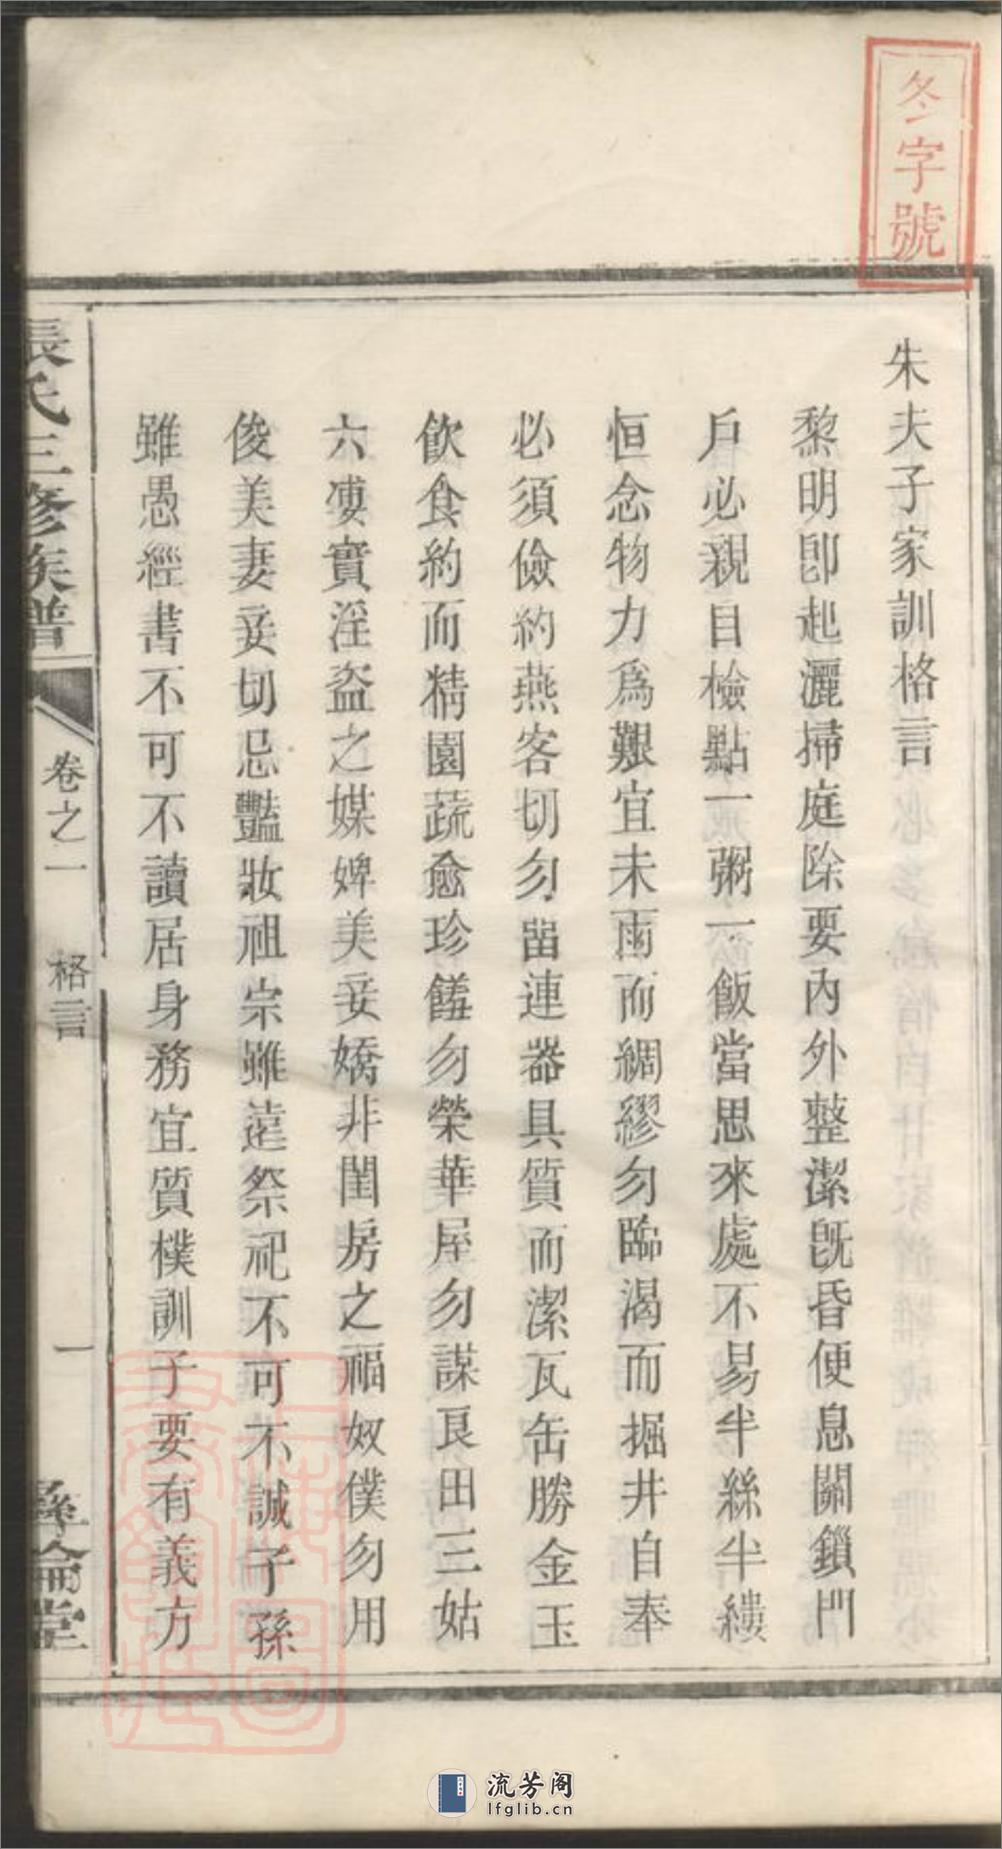 冬字號
朱夫子家訓格言
黎明卽起灑掃庭除要內外整潔旣昏便息關鎖門
戶必親目檢點一粥一飯當思來處不易半絲半縷
恒念物力爲艱宜未雨而綢繆勿臨渴而掘井自奉
必須儉約燕客切勿留連器具質而潔瓦缶勝金玉
飲食約而精園蔬愈珍饈勿榮華屋勿謀良田三姑
六婆實淫盜之媒婢美妾嬌非閨房之福奴僕勿用
俊美妻妾切忌豔妝祖宗雖遠祭祀不可不誠子孫
雖愚經書不可不讀居身務宜質樸訓子要有義方
張氏三修族譜
卷之一
格言
一
彝倫堂
上海圖書館藏
流芳阁
lfglib.cn